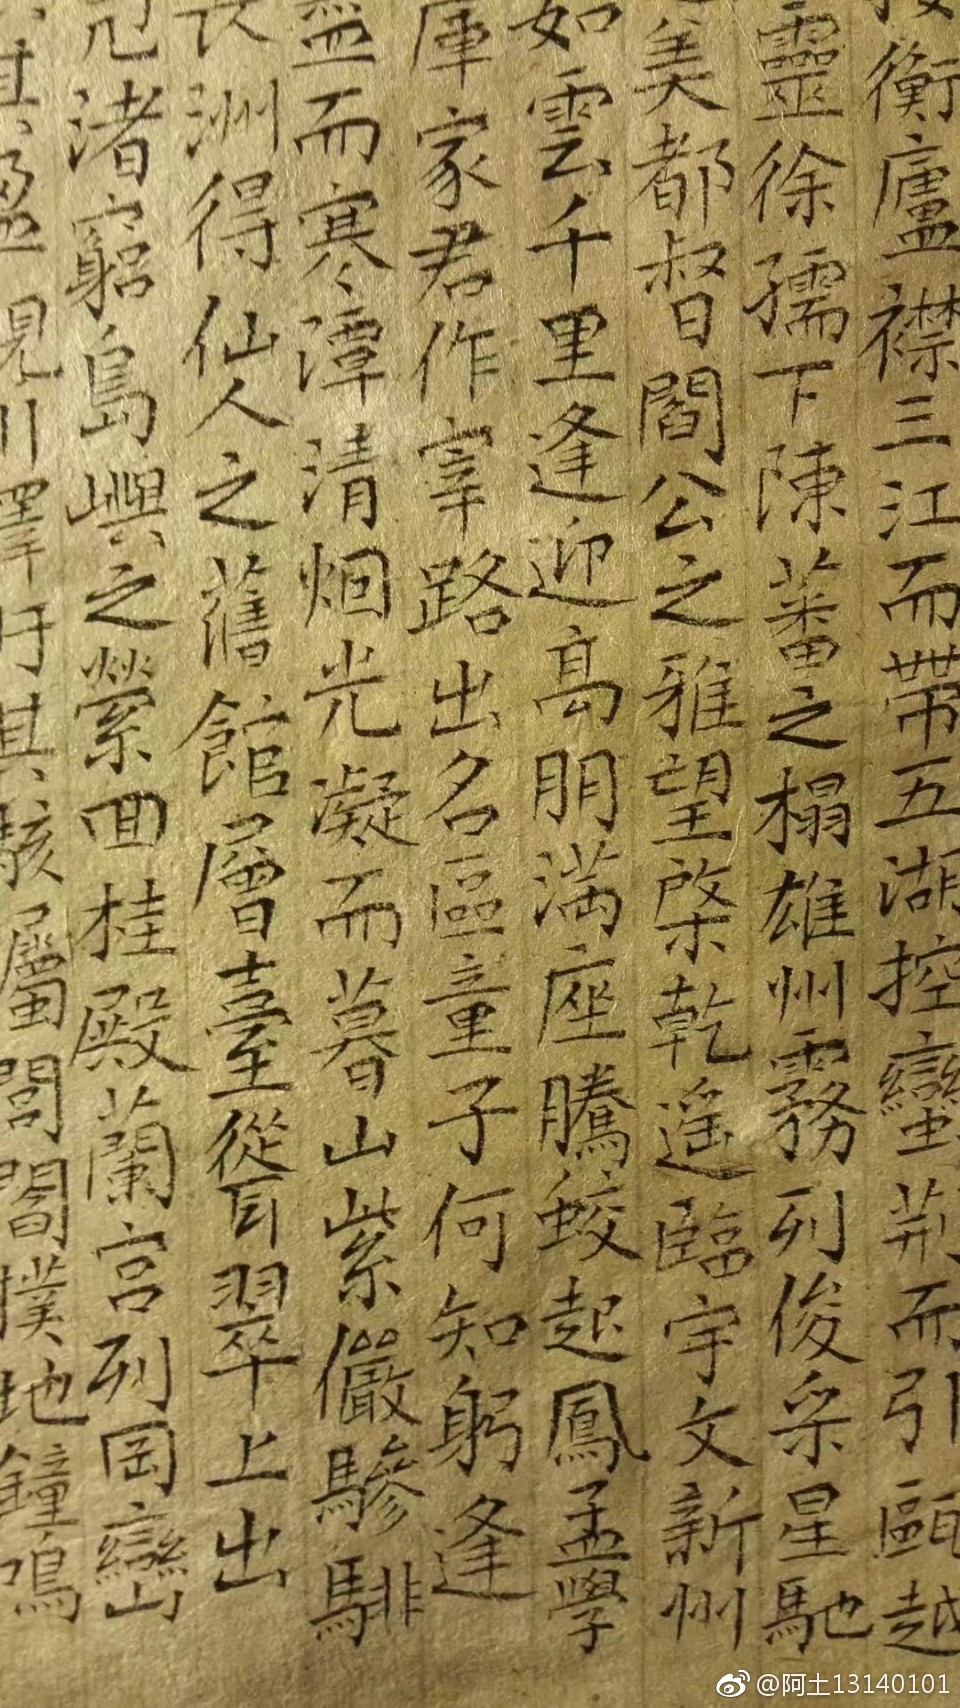 衡廬襟三江而帶五湖控蠻荆而引甌越
靈徐孺下陳蕃之榻雄州霧列俊采星馳
美都督閻公之雅望棨乾遥臨宇文新州
如雲千里逢迎高朋滿座騰蛟起鳳孟學
庫家君作宰路出名區童子何知躬逢
盡而寒潭清烟光凝而暮山紫儼驂騑
長洲得仙人之舊館層臺聳翠上出
鳧渚窮島嶼之縈回桂殿蘭宮列岡巒
其盈視川澤盱其駭屬閭閻撲地鐘鳴
@阿土13140101